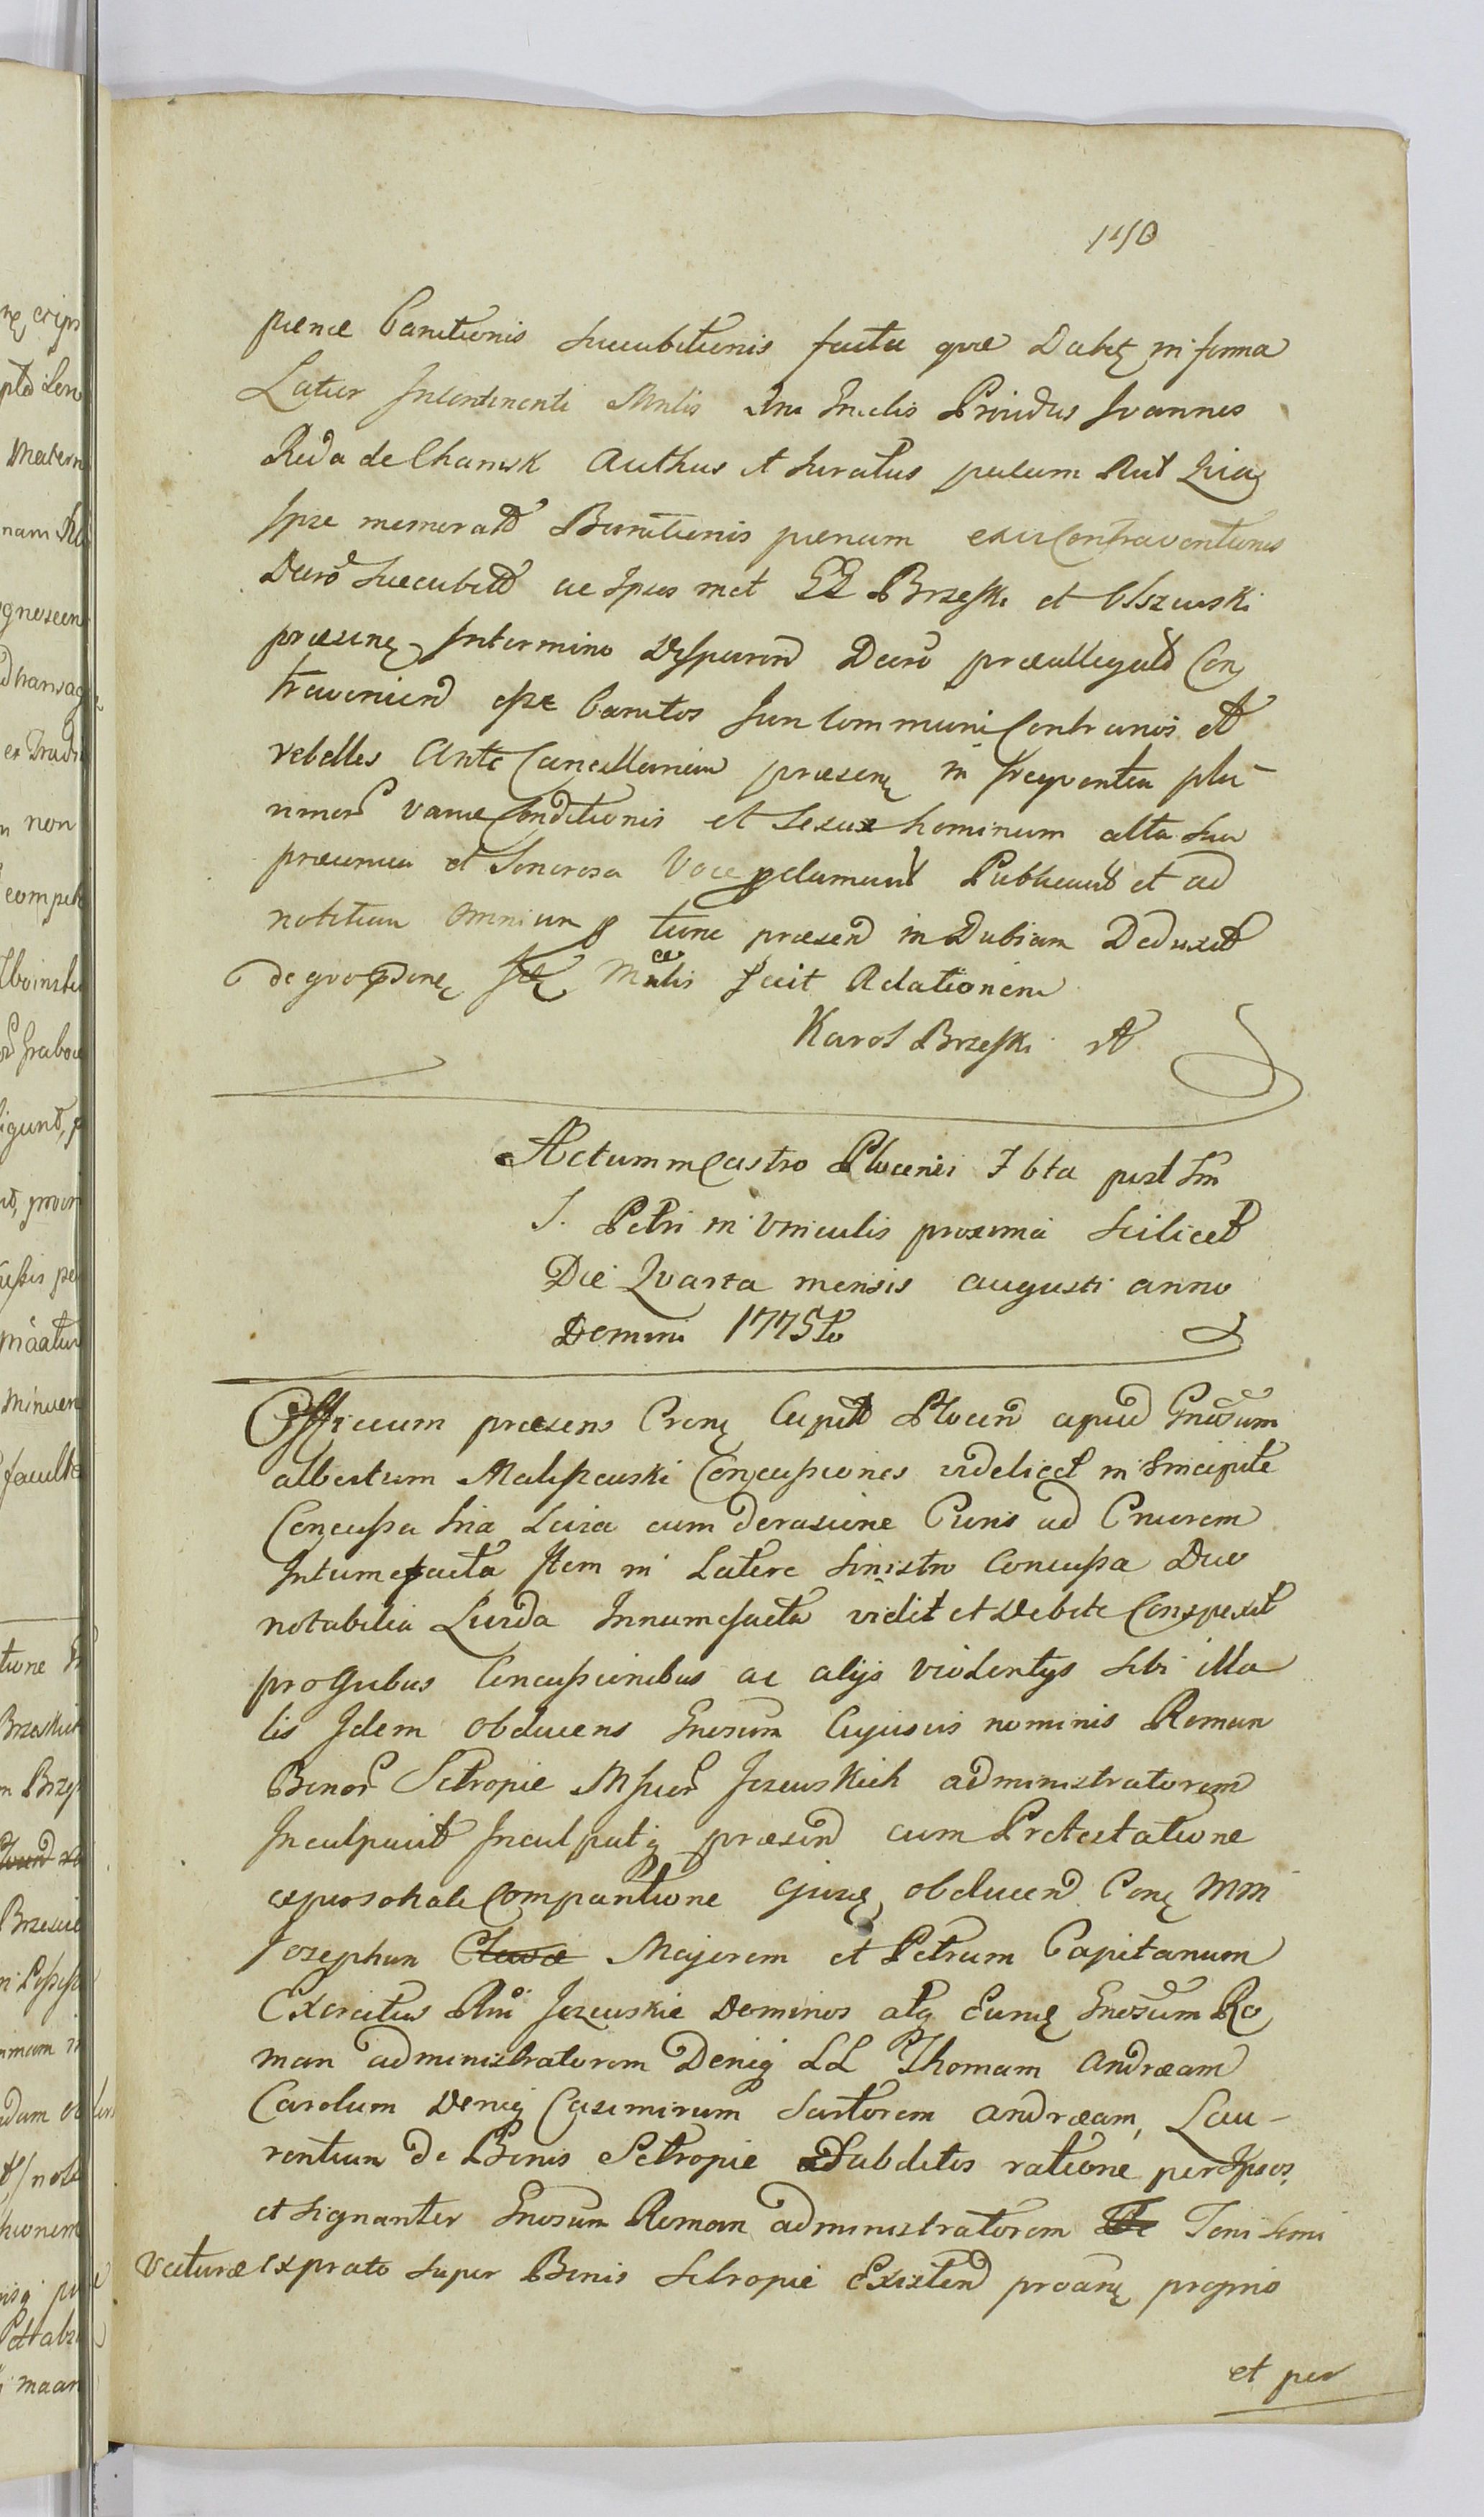 1110
pænæ Banitionis succubitionis facta quæ Dabitę in forma
Latur Incontinenti Mnlis Providus Joannes
Reda de Chamsk Authus et Juratus palam
Ipse memoratt Banitionis pænam Contraventionis
Decrő succubitt ac Ipsos met GG Brzeski et Olszewski
præsenę Intermino Desparend Decrő præallegatő Con
traveniend esse banitos Juri communi Contrarios et
rebelles Ante Cancellariam præsenę in frequentia plu-
rimorᷣ variæ Conditionis et sexus hominum alta sua
præconica et sonorosa Voce Publicavit et ad
notitiam omnium tunc præsend in Dubiam Deduxit
de quo Mnlis fecit Relationem
Karol Brzeski
Actum in Castro Plocensi 6ta post
S. Petri in Vinculis proxima scilicet
Die Quarta mensis augusti anno
Domini 1775to
Officium præsens Crenę Capitt Plocen apud Gnosum
albertum Maliszewski Concussiones videlicet in Sincipite
Concussa tria Livia cum derasione Cutis ad Cruorem
Intumefacta Item in Latere sinistro Concussa Duo
notabilia Livida Intumefacta vidit et Debite Conspexit
pro quibus Concussionibus ac alijs violentijs sibi illa
tis Idem obducens Gnosum Cujusvis nominis Roman
Bonorᷣ Setropie Jezewskich administratorem
Inculpavit Inculpatq præsend cum Protestatione
ex personali Compartione ejusdę obducend Conę MM
Josephum Majorem et Petrum Capitanum
Exercitus Jezewskie Dominos atq Eundę Gnosum Ro
man administratorem Deniq LL Thomam andræam
Carolum Deniq Casimirum sartorem andræam, Lau-
rentium de Bonis Setropie Subditos ratione per Ipsos,
et signanter Gnosum Roman administratorem Feni seu
vecturæ ex prato super Bonis Setropie Existend proprio
et per